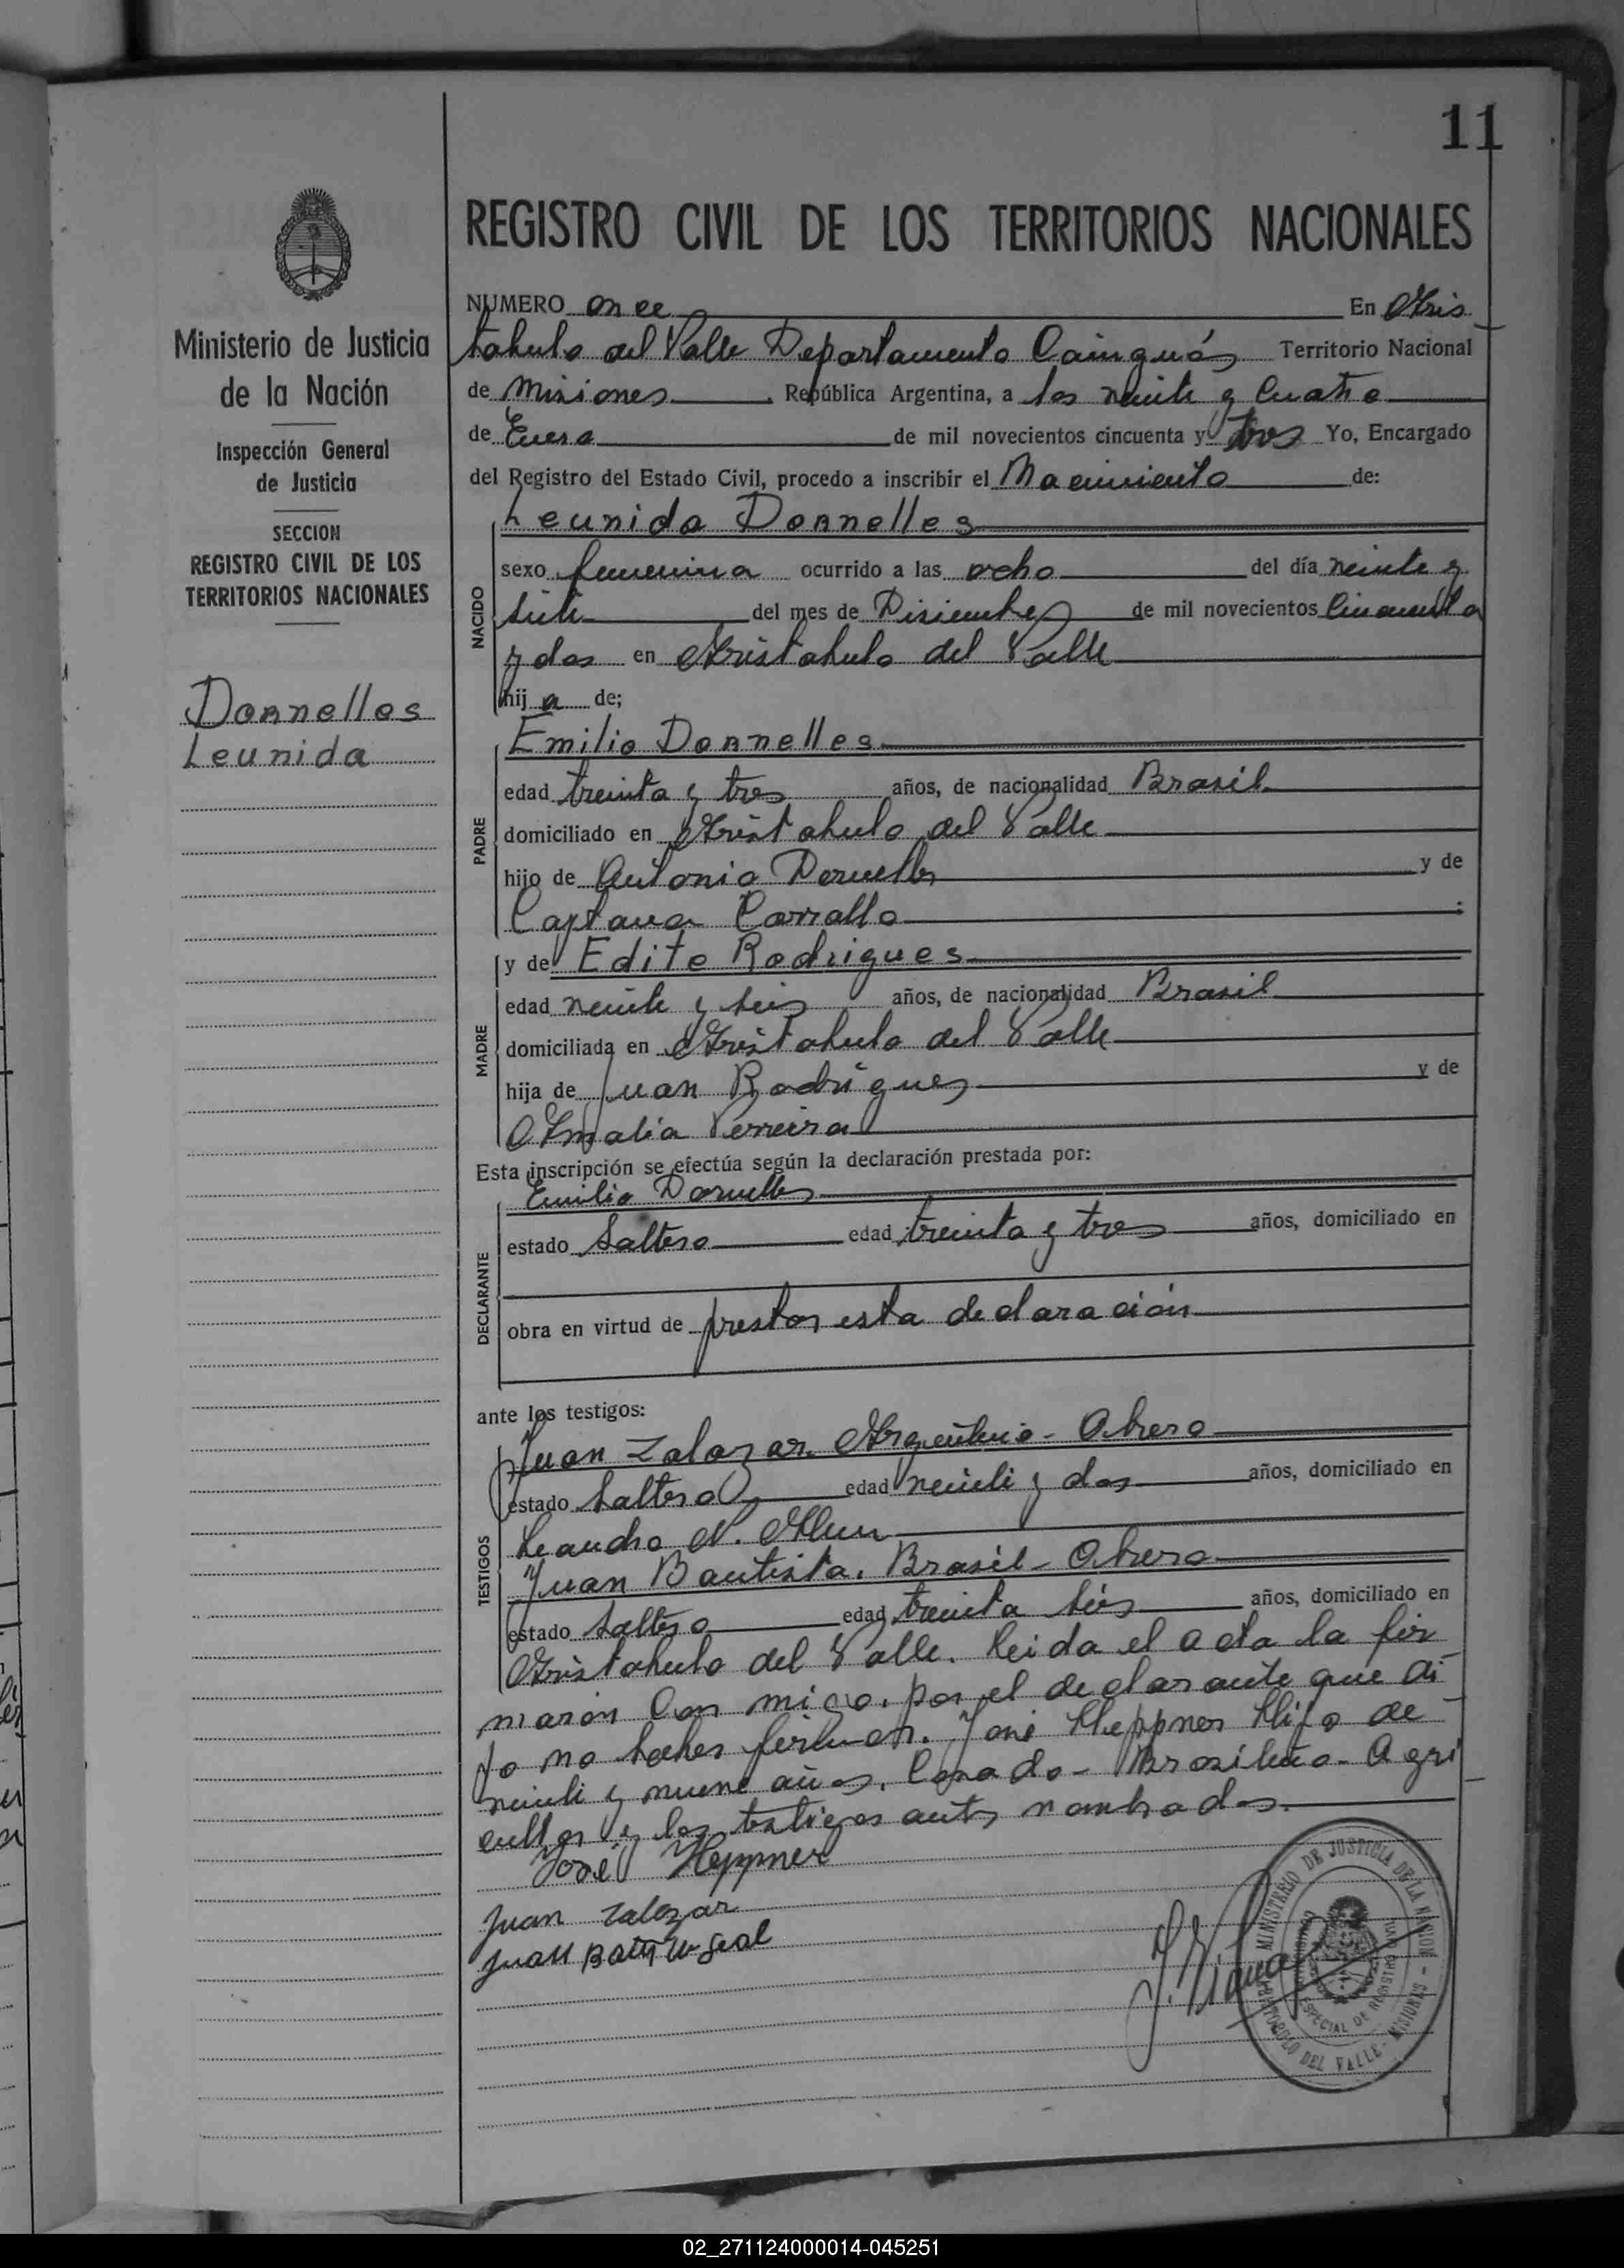 11
REGISTRO CIVIL DE LOS TERRITORIOS NACIONALES
Ministerio de Justicia
de la Nación
Inspección General
de Justicia
SECCION
REGISTRO CIVIL DE LOS
TERRITORIOS NACIONALES
Dornelles
Leunida
NUMERO once En Aris
tobulo del Valle Departamento Cainguás Territorio Nacional
de Misiones República Argentina, a los veinte y cuatro
de Enero de mil novecientos cincuenta y tres Yo, Encargado
del Registro del Estado Civil, procedo a inscribir el Nacimiento de:
Leunida Dornelles
NACIDO
sexo femenina ocurrido a las ocho del día veinte y
siete del mes de Disiembre de mil novecientos cincuenta
y dos en Aristobulo del Valle
hij a de;
Emilio Dornelles
PADRE
edad treinta y tres años, de nacionalidad Brasil
domiciliado en Aristobulo del Valle
hijo de Antonio Dornelles y de
Carrallo
y de Edite Rodrigues
MADRE
edad veinte y seis años, de nacionalidad Brasil
domiciliada en Aristobulo del Valle
hija de Juan Rodrigues y de
Amalia Perreira
Esta inscripción se efectúa según la declaración prestada por:
Emilio Dornelles
DECLARANTE
estado Soltero edad treinta y tres años, domiciliado en
obra en virtud de prestar esta declaración
ante los testigos:
TESTIGOS
Juan Zalazar. Argentino - Obrero
estado soltero edad veinte y dos años, domiciliado en
Leandro N. Alem
Juan Bautista. Brasil - Obrero
estado soltero edad treinta seis años, domiciliado en
Aristobulo del Valle. Leida el acta la fir
maron con migo. por el declarante que di
jo no saber firmar. José Heppner Hijo de
veinte y nueve años. Casado - Brasileño - Agri
cultor y los testigos antes nombrados.
José Heppner
Juan Zalazar
Juan
MINISTERIO DE JUSTICIA DE LA NACION - MISIONES
ESPECIAL DE REGISTRO CIVIL
DEL VALLE
02_271124000014-045251